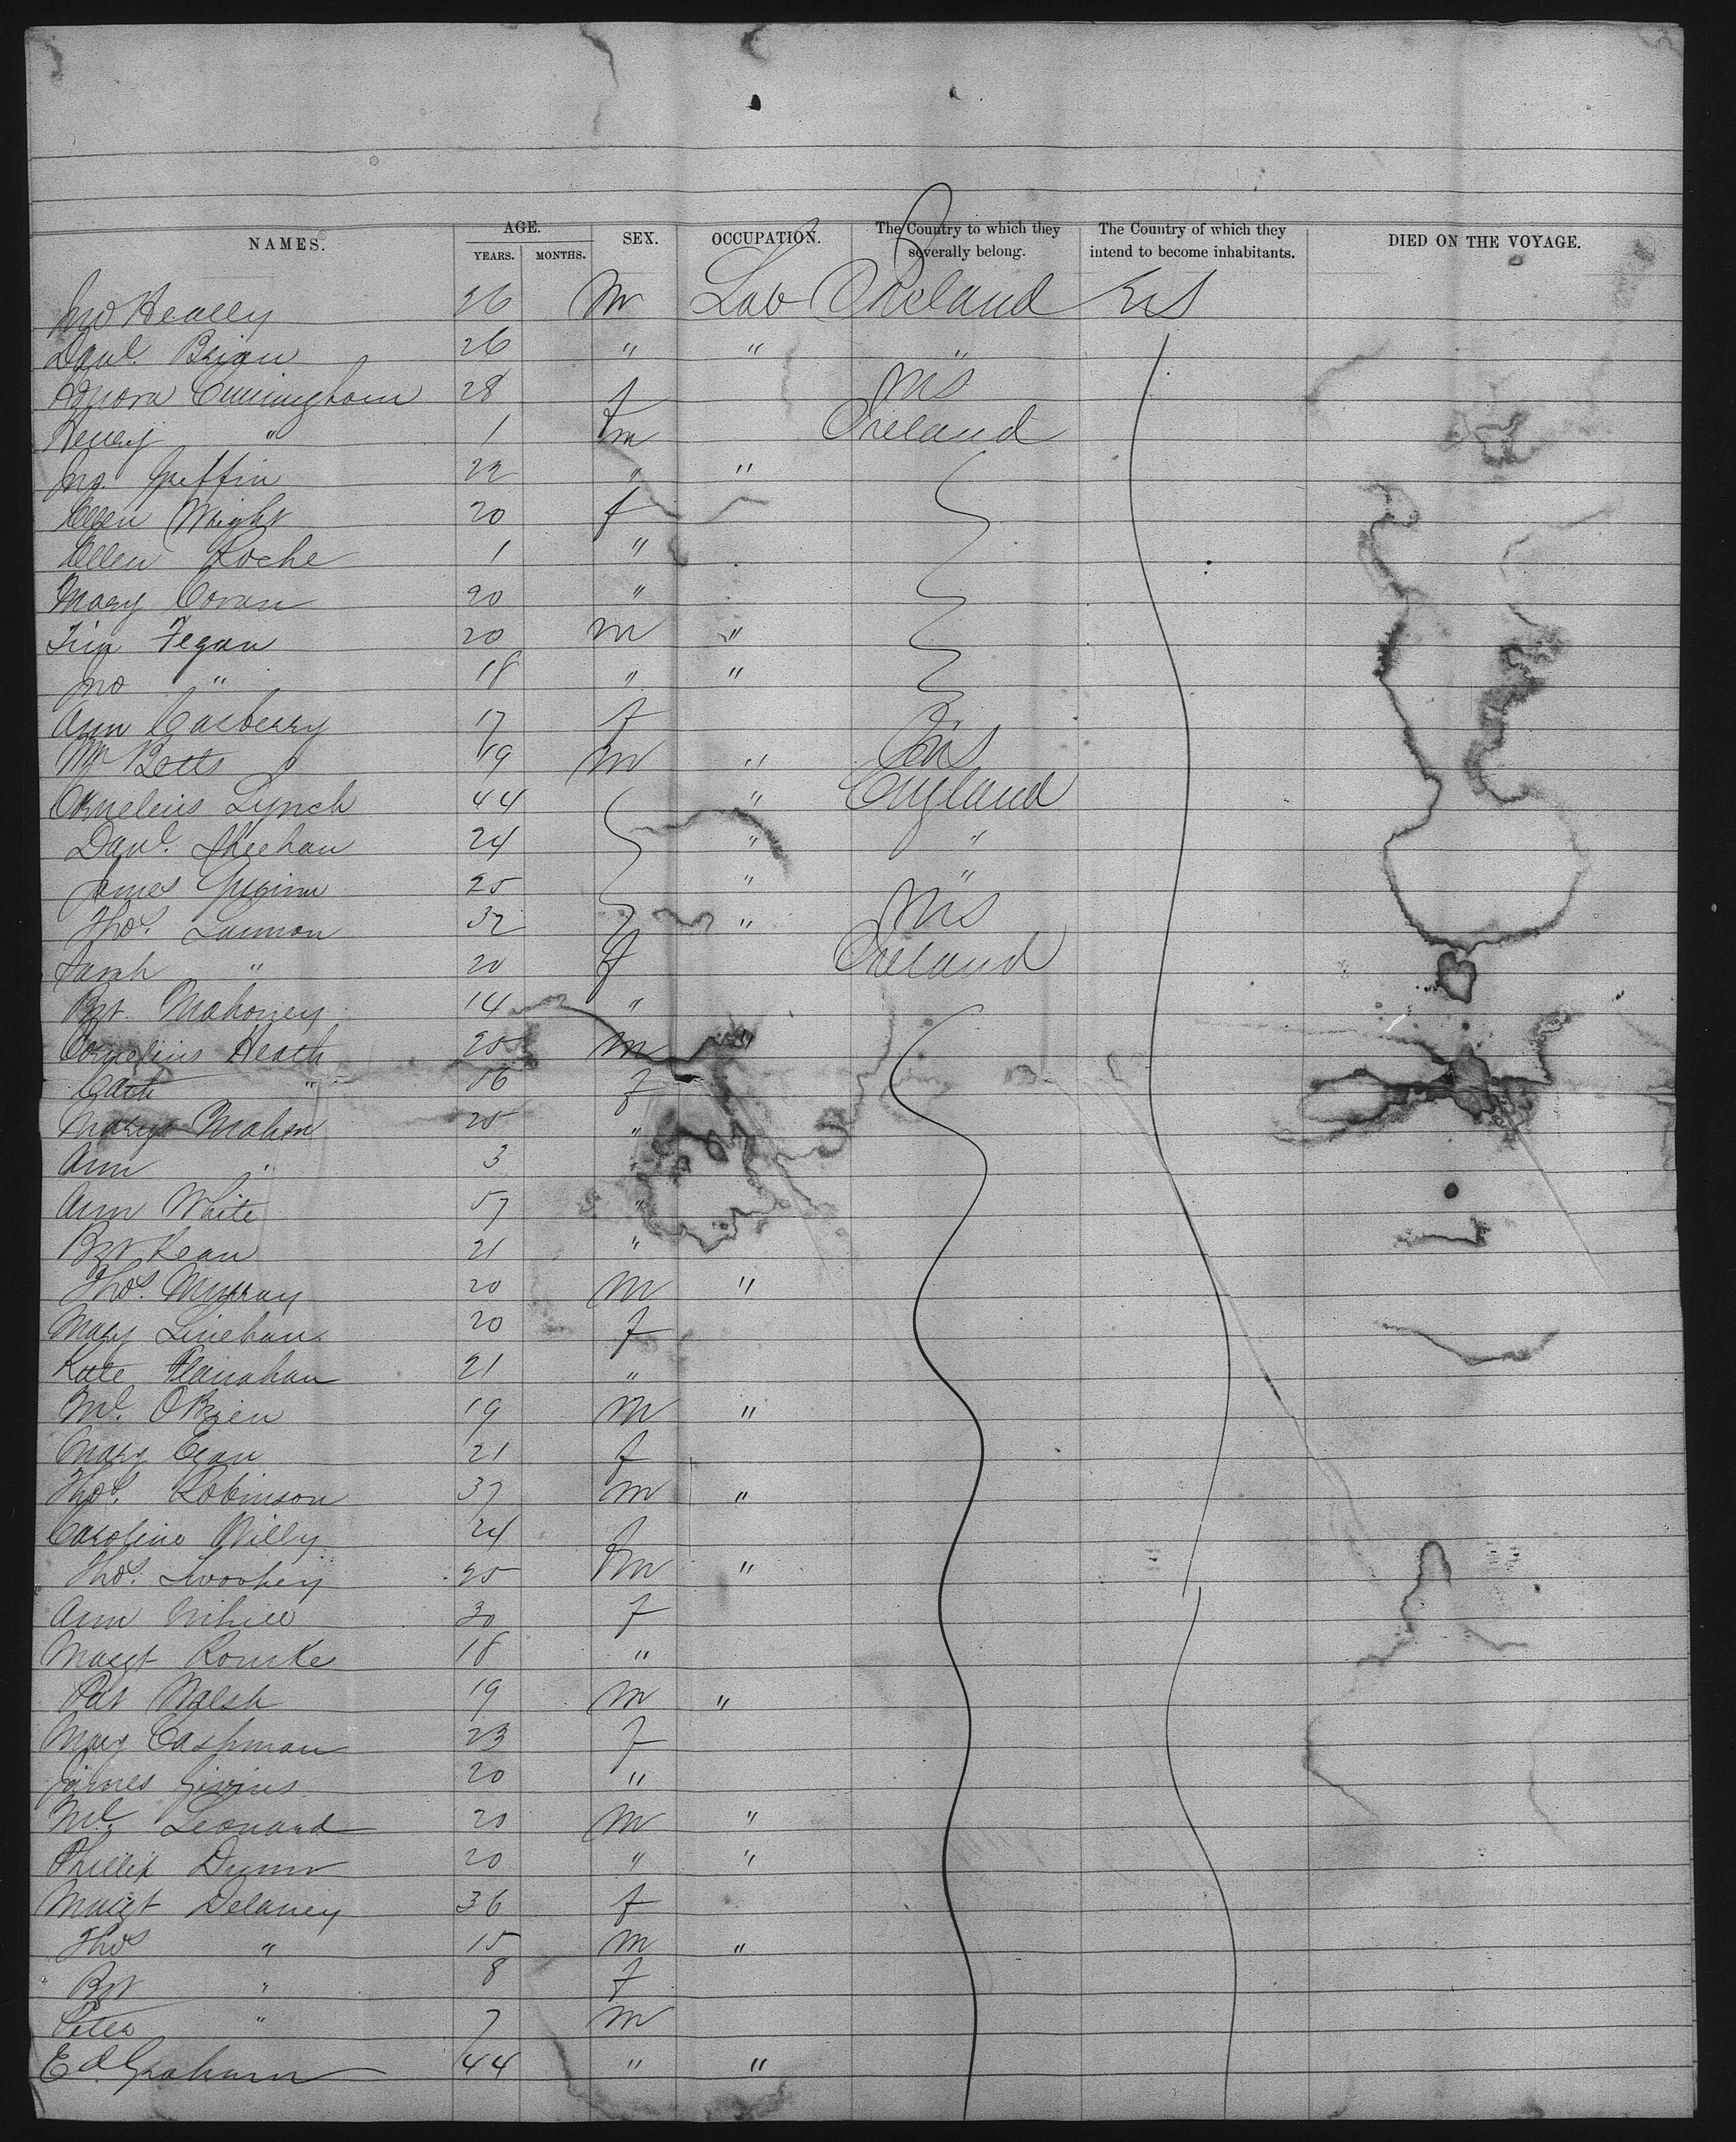 NAMES. AGE. YEARS. MONTHS. SEX. OCCUPATION. The Country to which they severally belong. The Country of which they intend to become inhabitants. DIED ON THE VOYAGE.
Jno Healey 26 m Lab Ireland US
Danl. Brian 26 " " "
Cunningham 28 f US
Henry " 1 m Ireland
Jno. Griffin 22 " "
Ellen Wright 20 f
Ellen Roche 1 "
Mary Coran 20 "
Tim Fegan 20 m "
Jno " 18 " "
Ann Casberry 17 f US
Wm Betts 19 m " England
Cornelius Lynch 44 "
Danl. Sheehan 24 " "
James 25 " "
Thos. Lannon 32 " US
Sarah " 20 f Ireland
Bgt. Mahoney 14 "
Cornelius Heath 25 m "
Cath " 16 f
Mary Mahon 25 "
Ann " 3 "
Ann White 57 "
Bgt Kean 21 "
Thos. Murray 20 m "
Mary Linehan 20 f
Kate Flanahan 21 "
Ml. OBrien 19 m "
Mary Egan 21 f
Thos. Robinson 37 m "
Caroline Willy 24 f
Thos. 25 m "
Ann Nihill 30 f
Margt Rourke 18 "
Pat Walsh 19 m "
Mary Cashman 23 f
James Givins 20 "
Ml. Leonard 20 m "
Phillip Dunn 20 " "
Margt Delaney 36 f
Thos " 15 m "
Bgt " 8 f
Peter " 7 m
Ed. Graham 44 " "